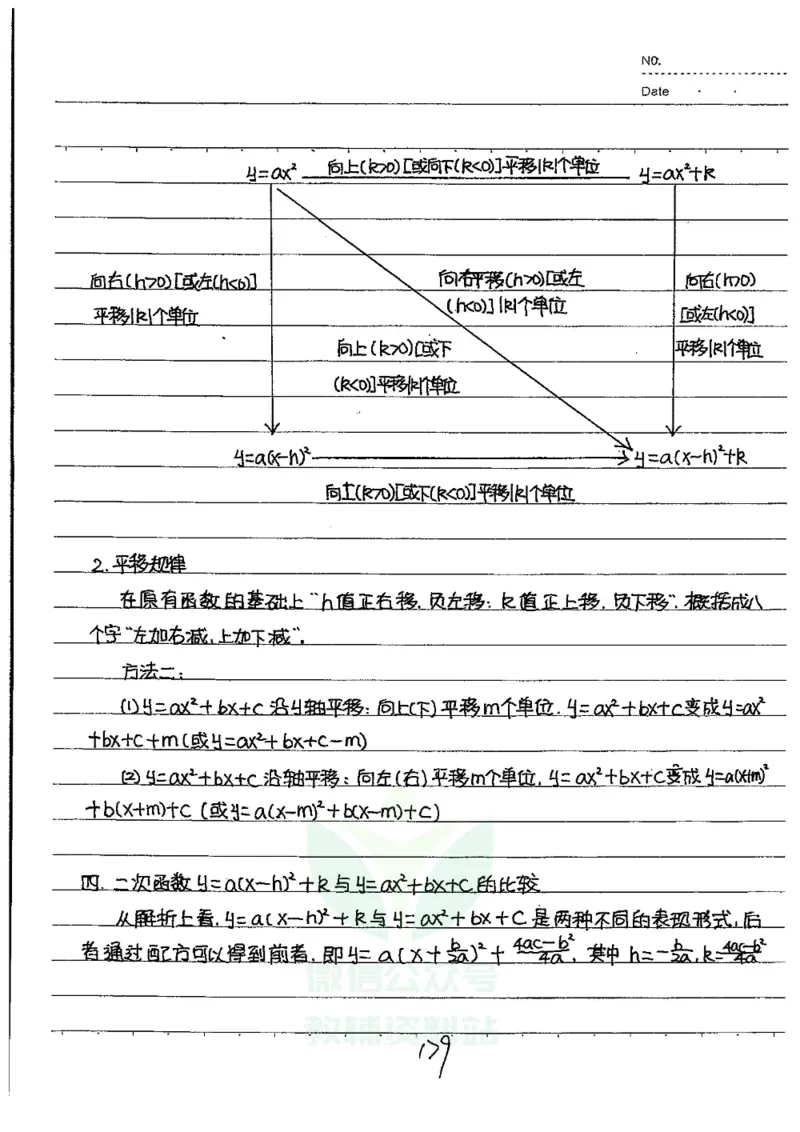 NO.
Date
y=ax² 向上(k>0)[或向下(k<0)]平移|k|个单位 y=ax²+k
向右(h>0)[或左(h<0)] 向右平移(h>0)[或左 向右(h>0)
平移|k|个单位 (h<0)] |k|个单位 [或左(h<0)]
向上(k>0)[或下 平移|k|个单位
(k<0)]平移|k|个单位
y=a(x-h)² y=a(x-h)²+k
向上(k>0)[或下(k<0)]平移|k|个单位
2.平移规律
在原有函数的基础上“h值正右移,负左移;k值正上移,负下移”.概括成八
个字“左加右减,上加下减”.
方法二:
(1)y=ax²+bx+c沿y轴平移:向上(下)平移m个单位.y=ax²+bx+c变成y=ax²
+bx+c+m(或y=ax²+bx+c-m)
(2)y=ax²+bx+c沿轴平移:向左(右)平移m个单位,y=ax²+bx+c变成y=a(x+m)²
+b(x+m)+c(或y=a(x-m)²+b(x-m)+c)
四.二次函数y=a(x-h)²+k与y=ax²+bx+c的比较
从解析上看,y=a(x-h)²+k与y=ax²+bx+c是两种不同的表现形式,后
者通过配方可以得到前者,即y=a(x+b/2a)²+4ac-b²/4a,其中h=-b/2a,k=4ac-b²/4a
微信公众号
教辅资料站
179